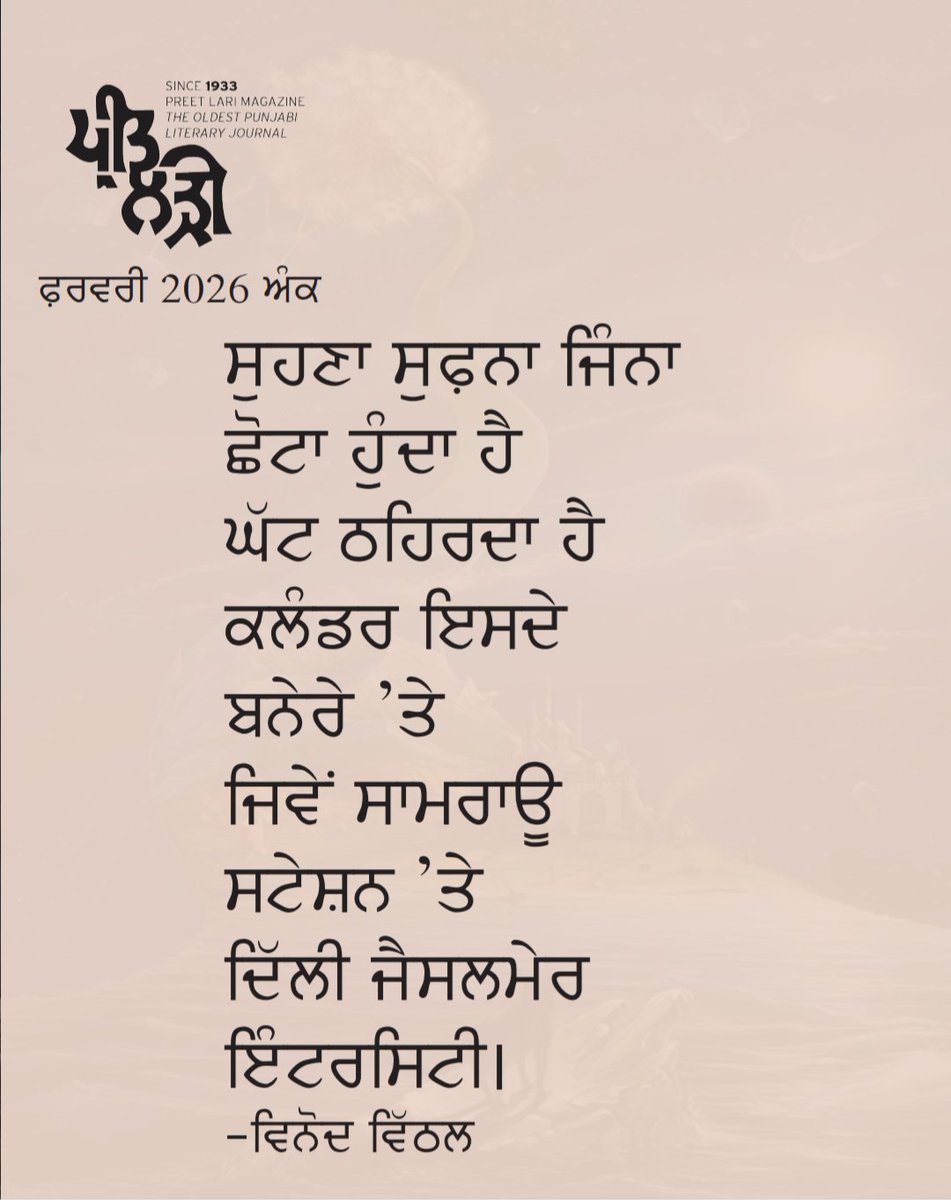 SINCE 1933
PREET LARI MAGAZINE
THE OLDEST PUNJABI
LITERARY JOURNAL
ਪ੍ਰੀਤ
ਲੜੀ
ਫ਼ਰਵਰੀ 2026 ਅੰਕ
ਸੁਹਣਾ ਸੁਫ਼ਨਾ ਜਿੰਨਾ
ਛੋਟਾ ਹੁੰਦਾ ਹੈ
ਘੱਟ ਠਹਿਰਦਾ ਹੈ
ਕਲੰਡਰ ਇਸਦੇ
ਬਨੇਰੇ ’ਤੇ
ਜਿਵੇਂ ਸਾਮਰਾਊ
ਸਟੇਸ਼ਨ ’ਤੇ
ਦਿੱਲੀ ਜੈਸਲਮੇਰ
ਇੰਟਰਸਿਟੀ।
-ਵਿਨੋਦ ਵਿੱਠਲ